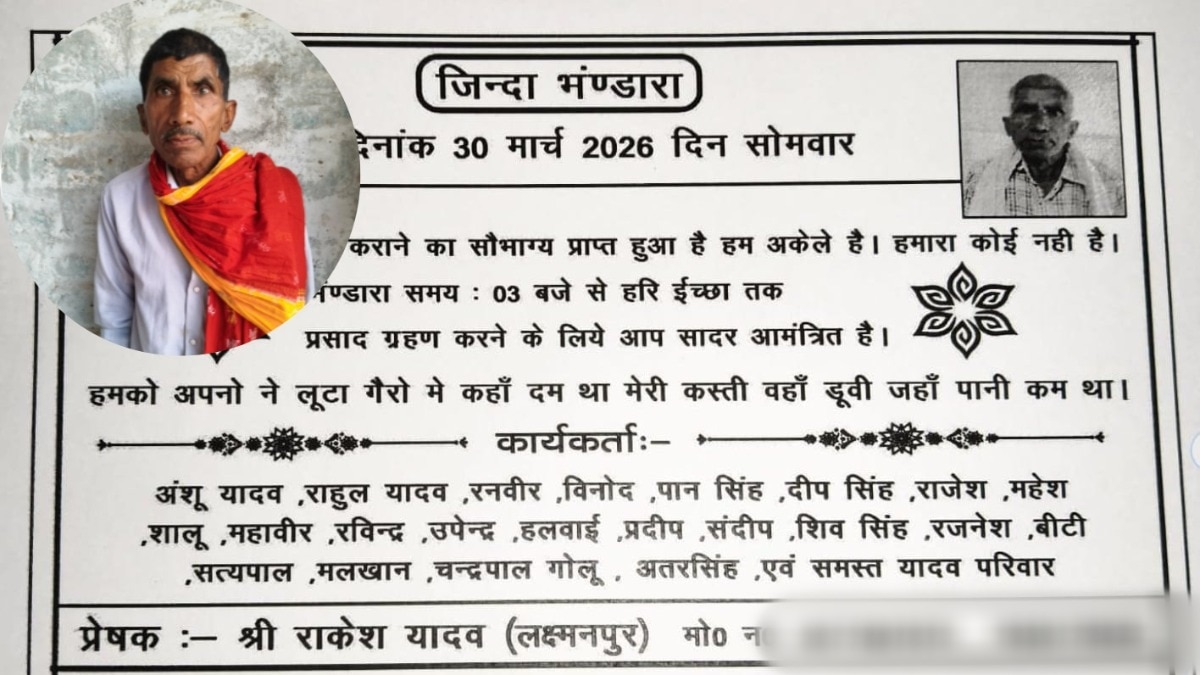 जिन्दा भंण्डारा
दिनांक 30 मार्च 2026 दिन सोमवार
कराने का सौभाग्य प्राप्त हुआ है हम अकेले है। हमारा कोई नही है।
भंण्डारा समय : 03 बजे से हरि ईच्छा तक
प्रसाद ग्रहण करने के लिये आप सादर आमंत्रित है।
हमको अपनो ने लूटा गैरो मे कहाँ दम था मेरी कस्ती वहाँ डूवी जहाँ पानी कम था।
कार्यकर्ताः–
अंशू यादव ,राहुल यादव ,रनवीर ,विनोद ,पान सिंह ,दीप सिंह ,राजेश ,महेश
,शालू ,महावीर ,रविन्द्र ,उपेन्द्र ,हलवाई ,प्रदीप ,संदीप ,शिव सिंह ,रजनेश ,बीटी
,सत्यपाल ,मलखान ,चन्द्रपाल गोलू , अतरसिंह ,एवं समस्त यादव परिवार
प्रेषक :– श्री राकेश यादव (लक्ष्मनपुर) मो0